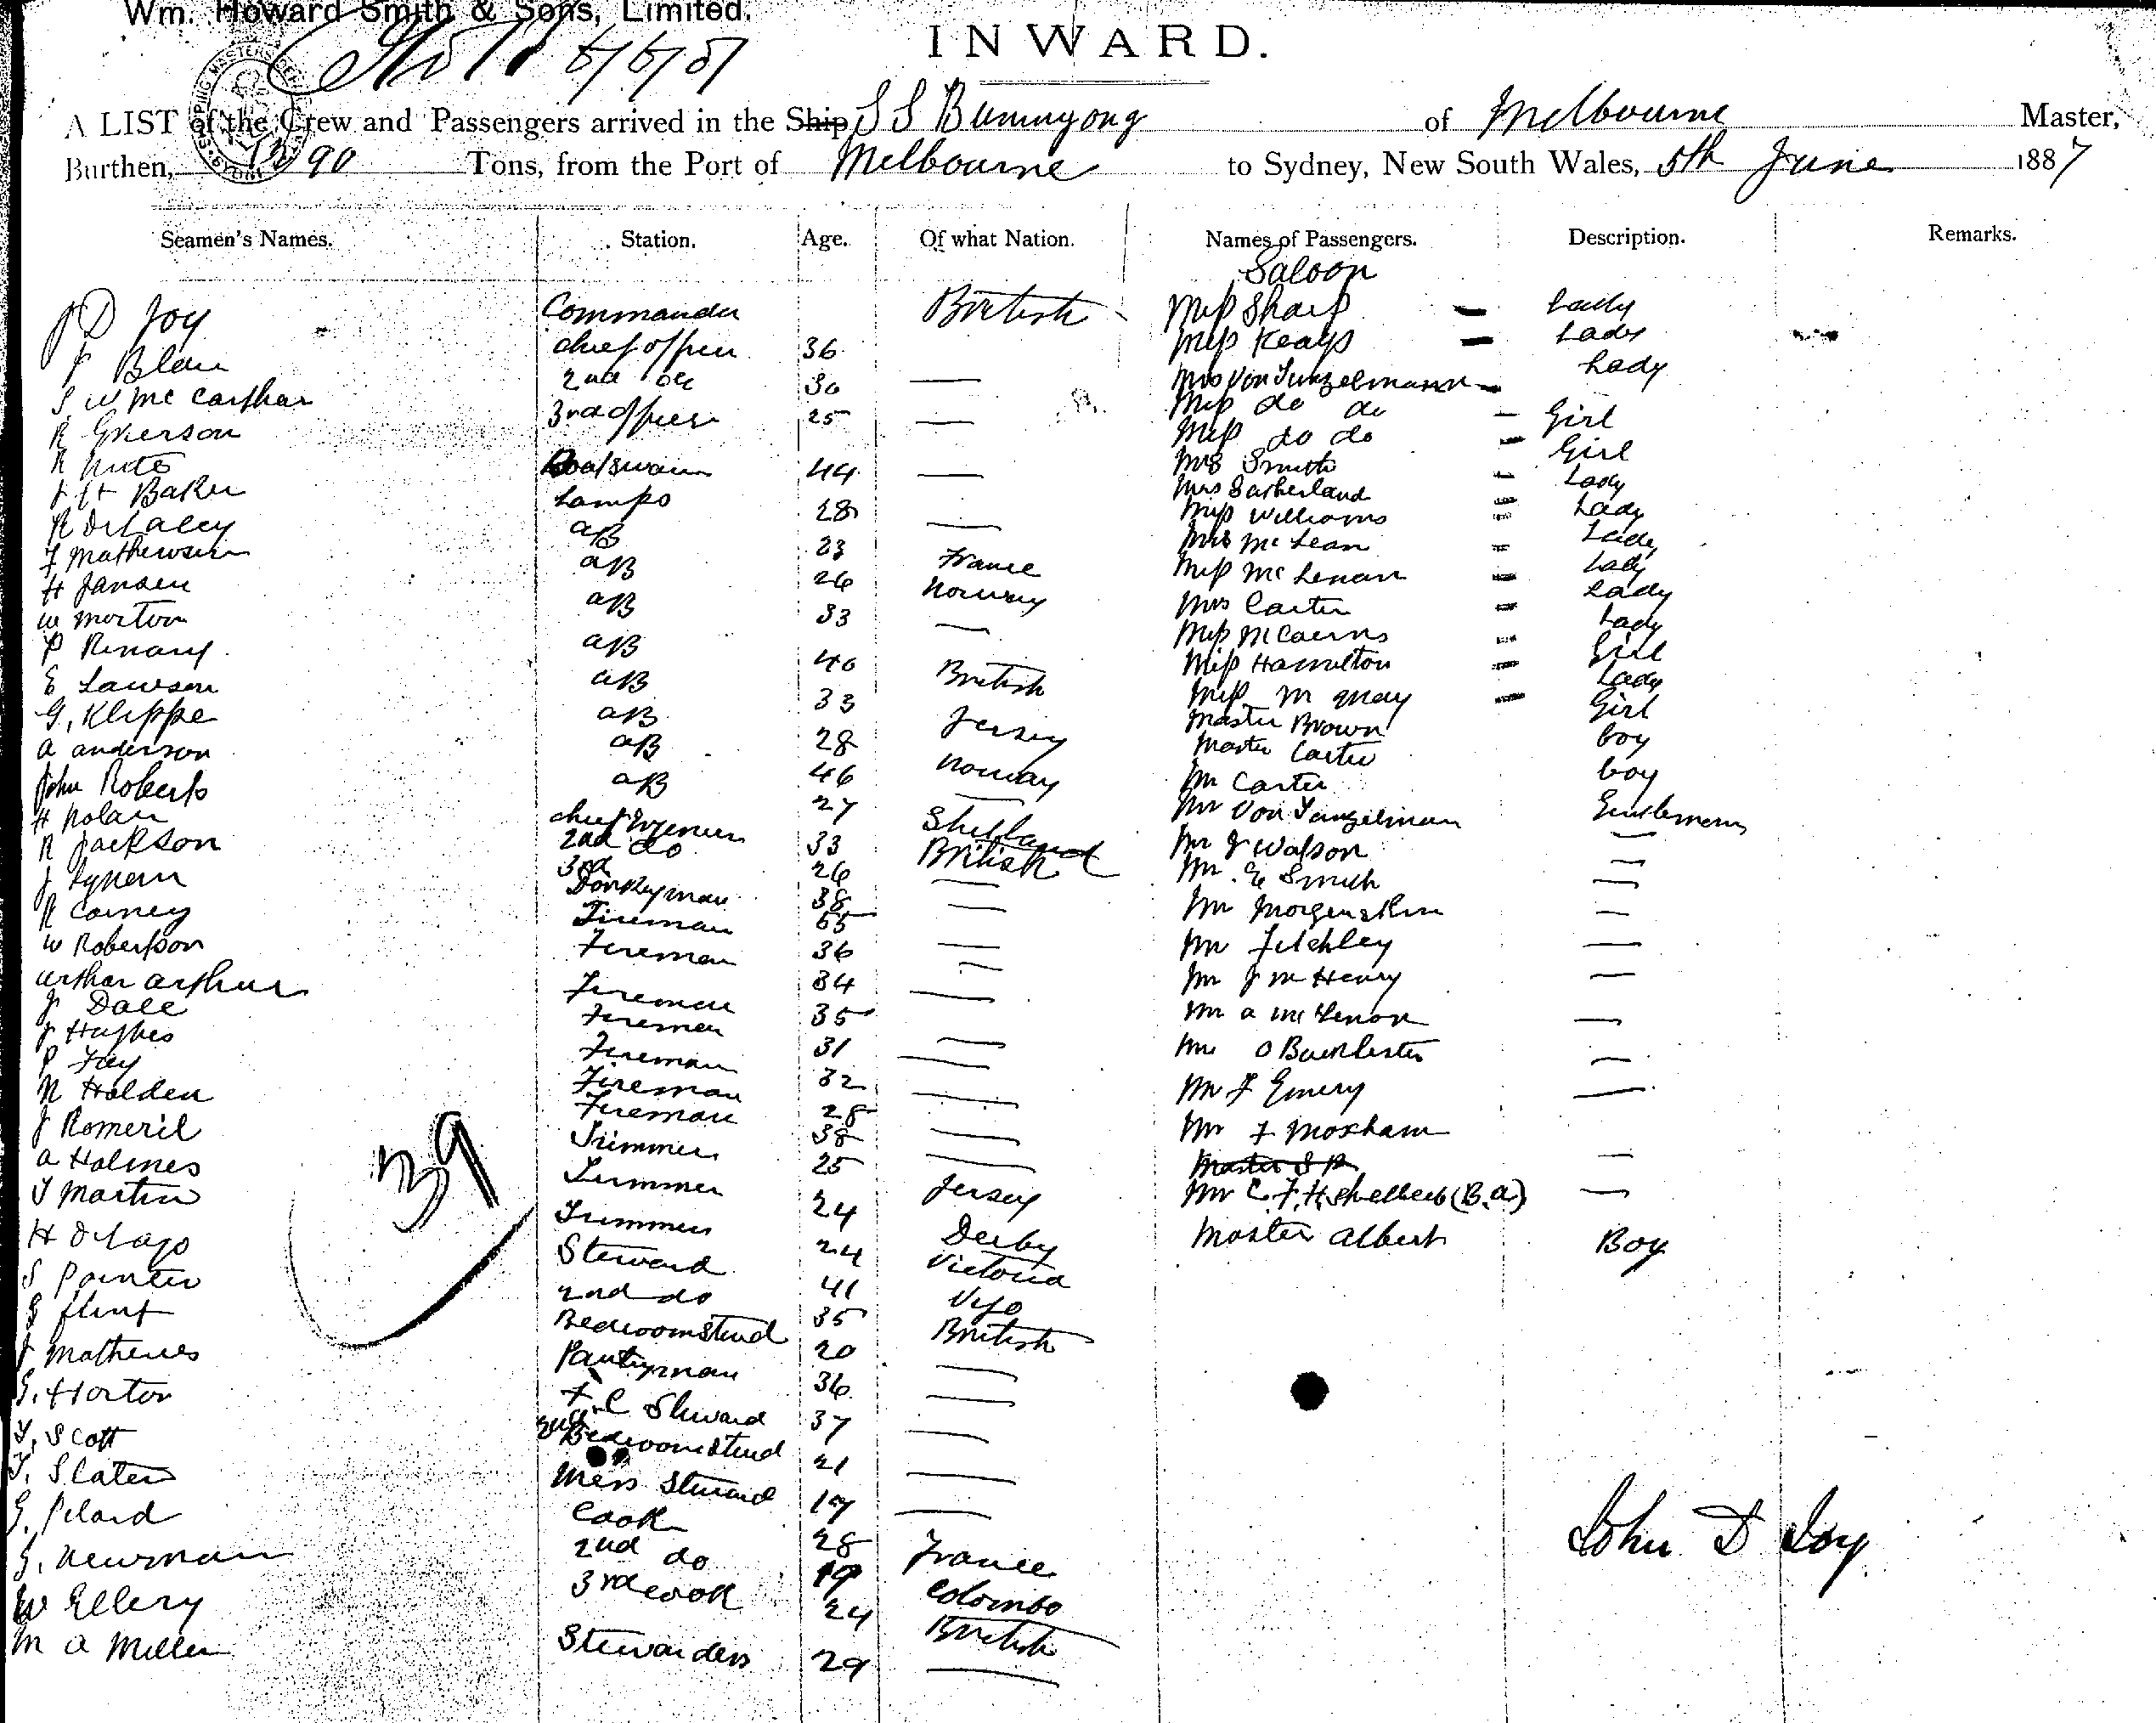 Wm. Howard Smith & Sons, Limited.
INWARD.
A LIST of the Crew and Passengers arrived in the Ship S S Bunninyong of Melbourne Master,
Burthen, 1290 Tons, from the Port of Melbourne to Sydney, New South Wales, 5th June 1887
Seamen's Names. Station. Age. Of what Nation. Names of Passengers. Description. Remarks.
Saloon
J D Joy Commander British Miss Sharp Lady
J Blair chief officer 36 Miss Keays Lady
S W Mc Carthar 2nd 30 — Mrs Von Tunzelmann Lady
R Grierson 3rd officer 25 — Miss do do Girl
Miss do do Girl
R Boatswain 44 — Mrs Smith Lady
J H Baker Lamps 28 Mrs Sutherland Lady
R DeLacey AB 23 — Miss Williams Lady
F Mathewson AB 26 France Mrs Mc Lean Lady
H Jansen AB 33 Norway Miss Mc Lenan Lady
W Morton AB 40 — Mrs Carter Lady
P Renauf AB 33 British Miss McCairns Girl
E Lawson AB 28 Jersey Miss Hamilton Lady
G. Klippe AB 46 Norway Miss M Quay Girl
A Anderson AB 27 — Master Brown boy
John Roberts chief Engineer 33 Shetland Master Carter boy
H Nolan 2nd do 26 British Mr Carter Gentleman
R Jackson 3rd 38 — Mr Von Tunzelman —
J Donkeyman 55 — Mr J Watson —
R Carney Fireman 36 — Mr E Smith —
W Robertson Fireman 34 — Mr Morgenstern —
Arthur Arthur Fireman 35 — Mr Fitchley —
J Dale Fireman 31 — Mr J M Henry —
J Hughes Fireman 32 — Mr A Mc Lenon —
P Fay Fireman 28 — Mr O
N Holden Fireman 38 — Mr F Emery —
J Romeril Trimmer 25 Jersey Mr F Moxham —
A Holmes Trimmer 24 Derby Master S
T Martin Trimmer 24 Victoria Mr C. F. H. (B.A) —
H Steward 41 Master Albert Boy
S Painter 2nd do 35 British
G Flint Bedroom Stewd 20 —
J Mathews Pantryman 36 —
G. Horton F. C Steward 37 —
T. Scott 2nd Bedroom Stewd 21 —
T. Slater Mess Steward 17 —
G. Pelard Cook 28 France
G. Newman 2nd do 19 Colombo
W Ellery 3rd cook 24 British
M A Miller Stewardess 29 —
39
John D Joy